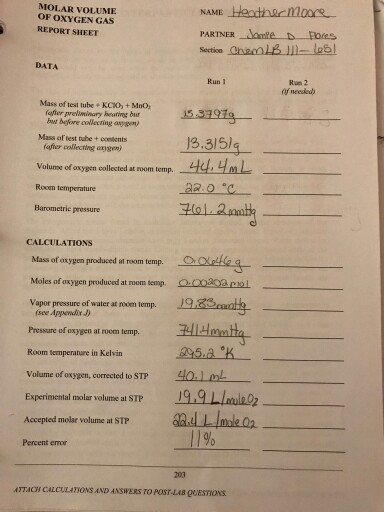 MOLAR VOLUME
OF OXYGEN GAS
REPORT SHEET
NAME Heather Moore
PARTNER Jamie D Flores
Section ChemLB 111-651
DATA
Run 1 Run 2
(if needed)
Mass of test tube + KClO₃ + MnO₂
(after preliminary heating but
but before collecting oxygen) 13.3797g
Mass of test tube + contents
(after collecting oxygen) 13.3151g
Volume of oxygen collected at room temp. 44.4mL
Room temperature 22.0 °C
Barometric pressure 761.2mmHg
CALCULATIONS
Mass of oxygen produced at room temp. 0.0646g
Moles of oxygen produced at room temp. 0.00202mol
Vapor pressure of water at room temp. 19.83mmHg
(see Appendix J)
Pressure of oxygen at room temp. 741.4mmHg
Room temperature in Kelvin 295.2 °K
Volume of oxygen, corrected to STP 40.1 mL
Experimental molar volume at STP 19.9 L/moleO₂
Accepted molar volume at STP 22.4 L/mole O₂
Percent error 11%
203
ATTACH CALCULATIONS AND ANSWERS TO POST-LAB QUESTIONS.